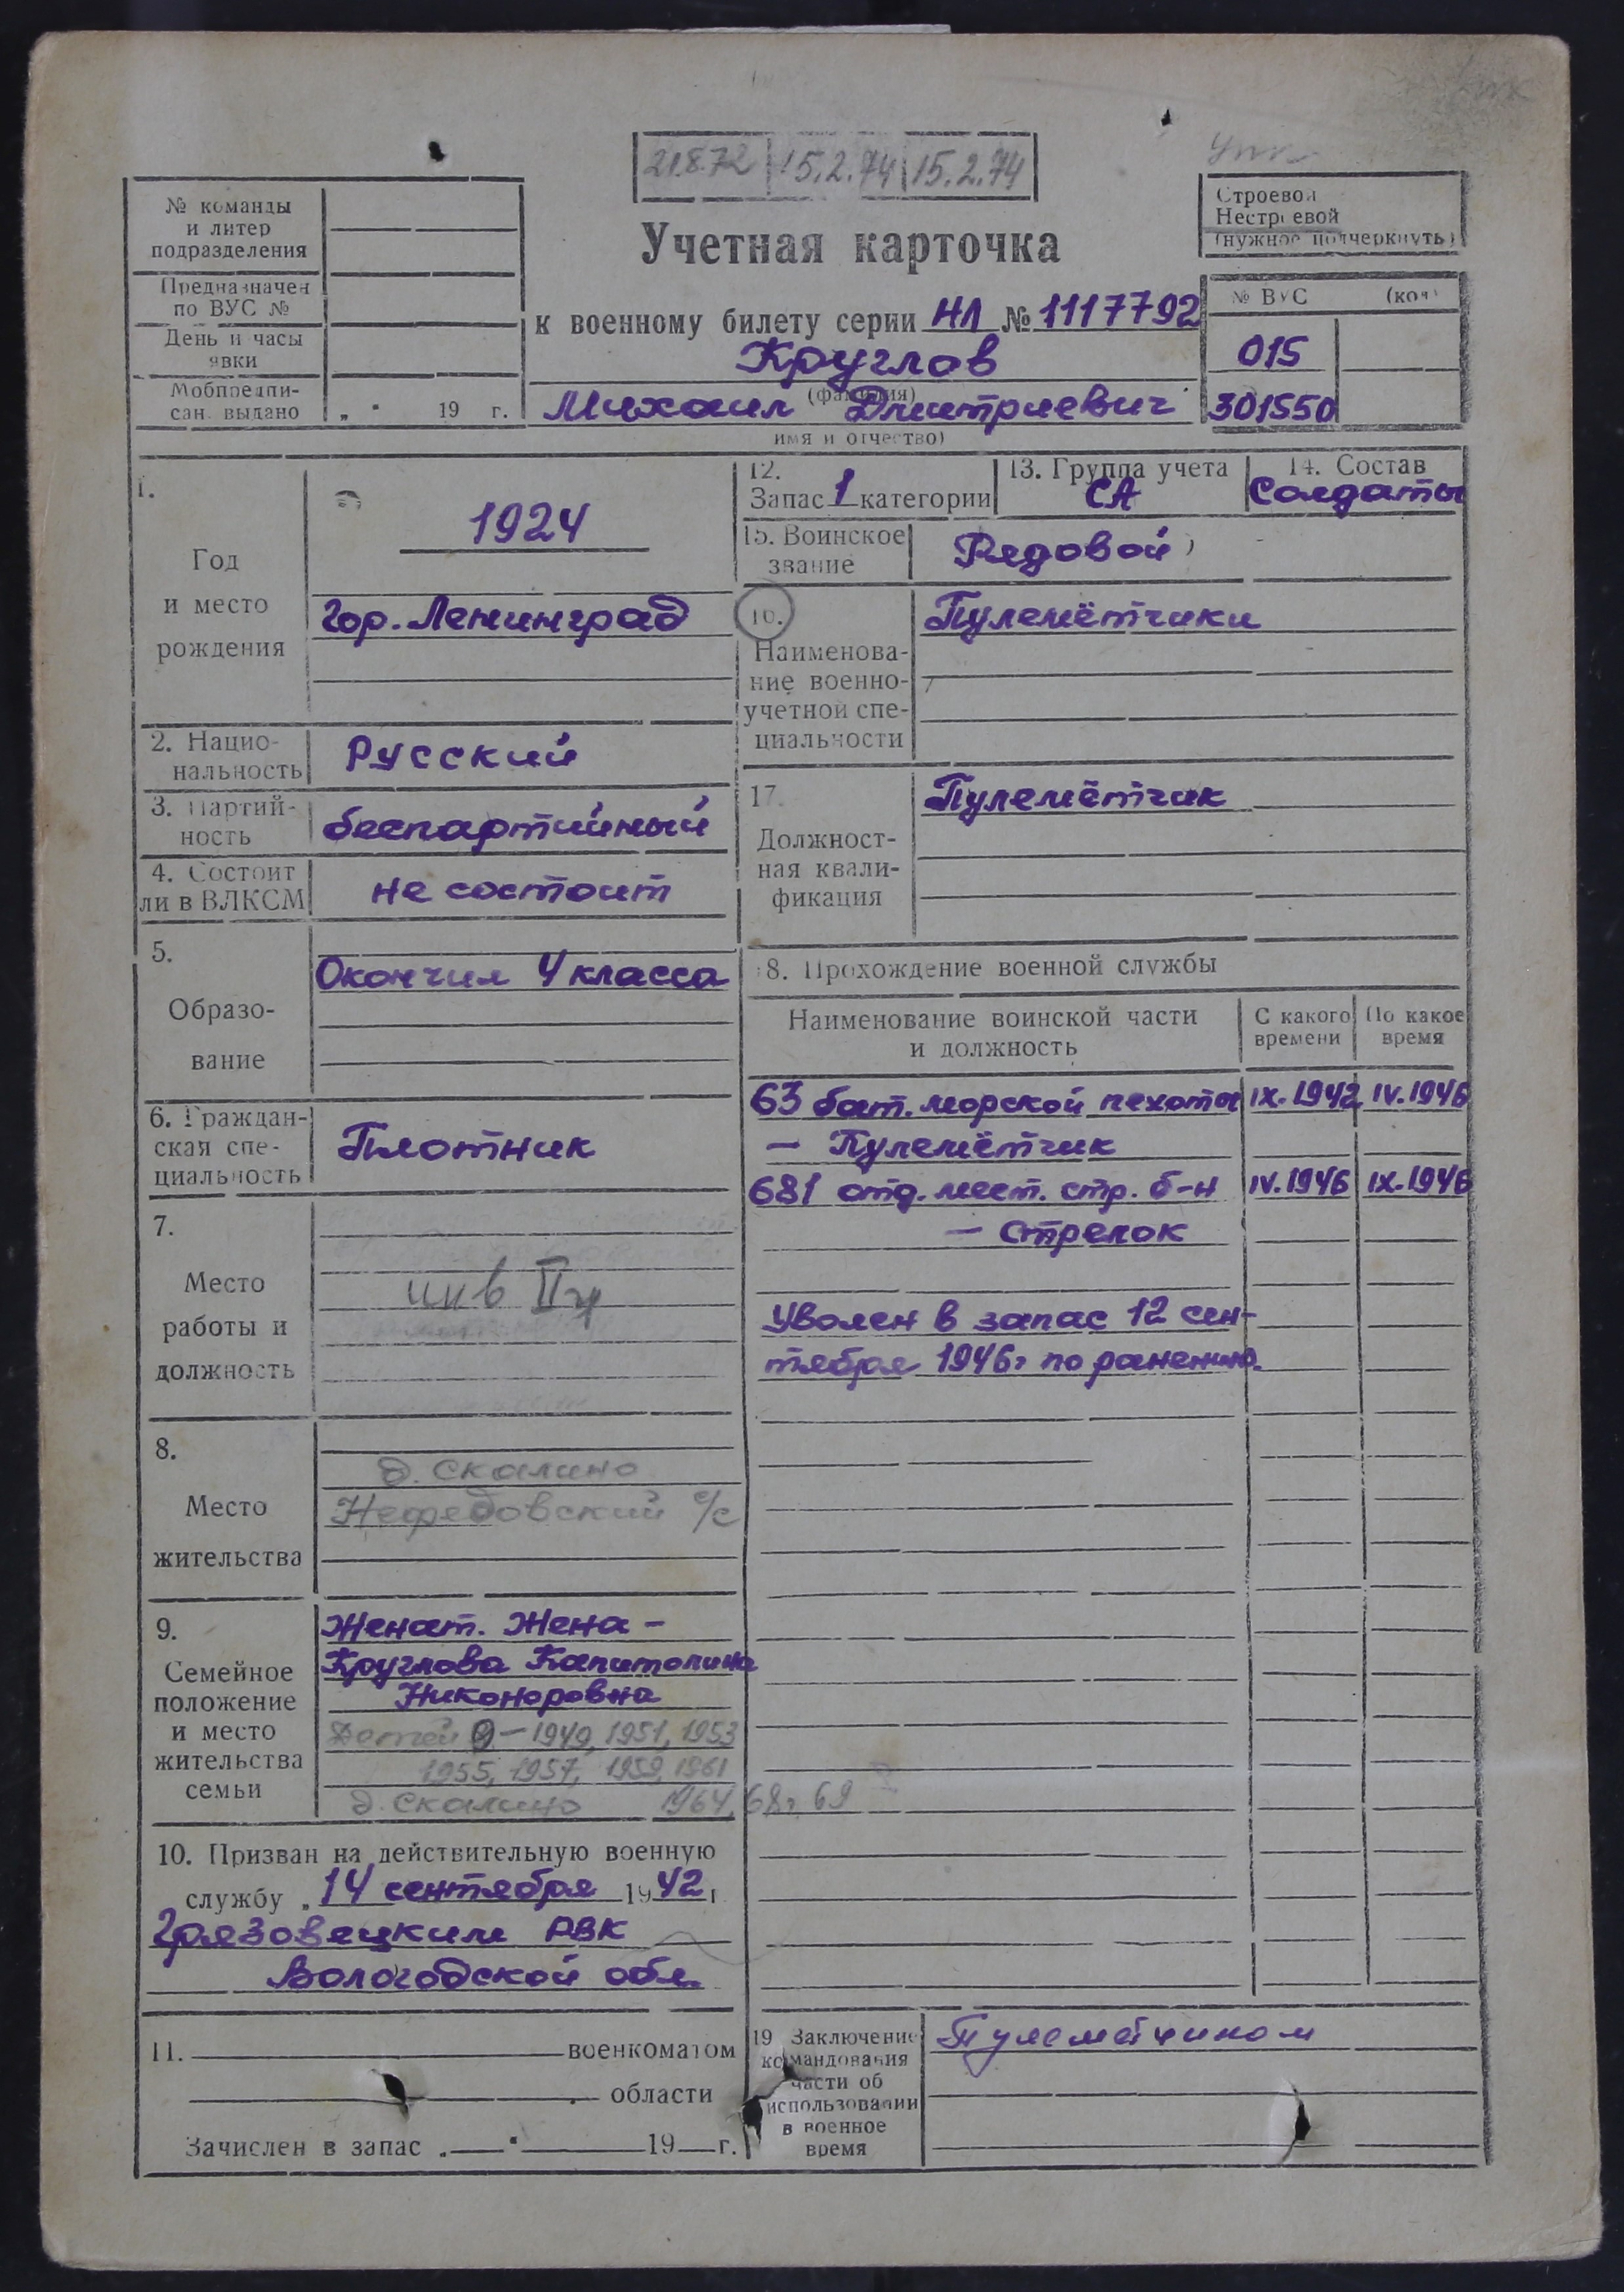 21.8.72 15.2.74 15.2.74
№ команды
и литер
подразделения
Предназначен
по ВУС №
День и часы
явки
Мобпредпи-
сан. выдано „ " 19 г.
Учетная карточка
к военному билету серии НЛ № 1117792
Круглов
(фамилия)
Михаил Дмитриевич
имя и отчество)
Строевой
Нестроевой
(нужное подчеркнуть)
№ ВУС (код)
015
301550
1.
Год
и место
рождения
1924
гор. Ленинград
2. Нацио-
нальность
Русский
3. Партий-
ность
беспартийный
4. Состоит
ли в ВЛКСМ
не состоит
5.
Образо-
вание
Окончил 4 класса
6. Граждан-
ская спе-
циальность
Плотник
7.
Место
работы и
должность
инв II гр
8.
Место
жительства
д. Скалино
Нефедовский с/с
9.
Семейное
положение
и место
жительства
семьи
Женат. Жена –
Круглова Капитолина
Никоноровна
Детей 9 – 1949, 1951, 1953
1955, 1957, 1959, 1961
д. Скалино 1964, 68г, 69
10. Призван на действительную военную
службу „ 14 сентября 1942 г
Грязовецким РВК
Вологодской обл.
11. военкоматом
области
Зачислен в запас „ " 19 г.
12.
Запас 1 категории
13. Группа учета
СА
14. Состав
Солдаты
15. Воинское
звание
Рядовой
16.
Наименова-
ние военно-
учетной спе-
циальности
Пулемётчики
17.
Должност-
ная квали-
фикация
Пулемётчик
18. Прохождение военной службы
Наименование воинской части
и должность
С какого
времени
По какое
время
63 бат. морской пехоты IX.1942 IV.1946
– Пулемётчик
681 отд. мест. стр. б-н IV.1946 IX.1946
– Стрелок
Уволен в запас 12 сен-
тября 1946г по ранению.
19 Заключение
командования
части об
использовании
в военное
время
Пулеметчиком